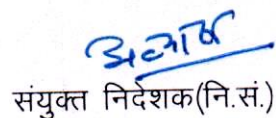 संयुक्त निदेशक(नि.सं.)